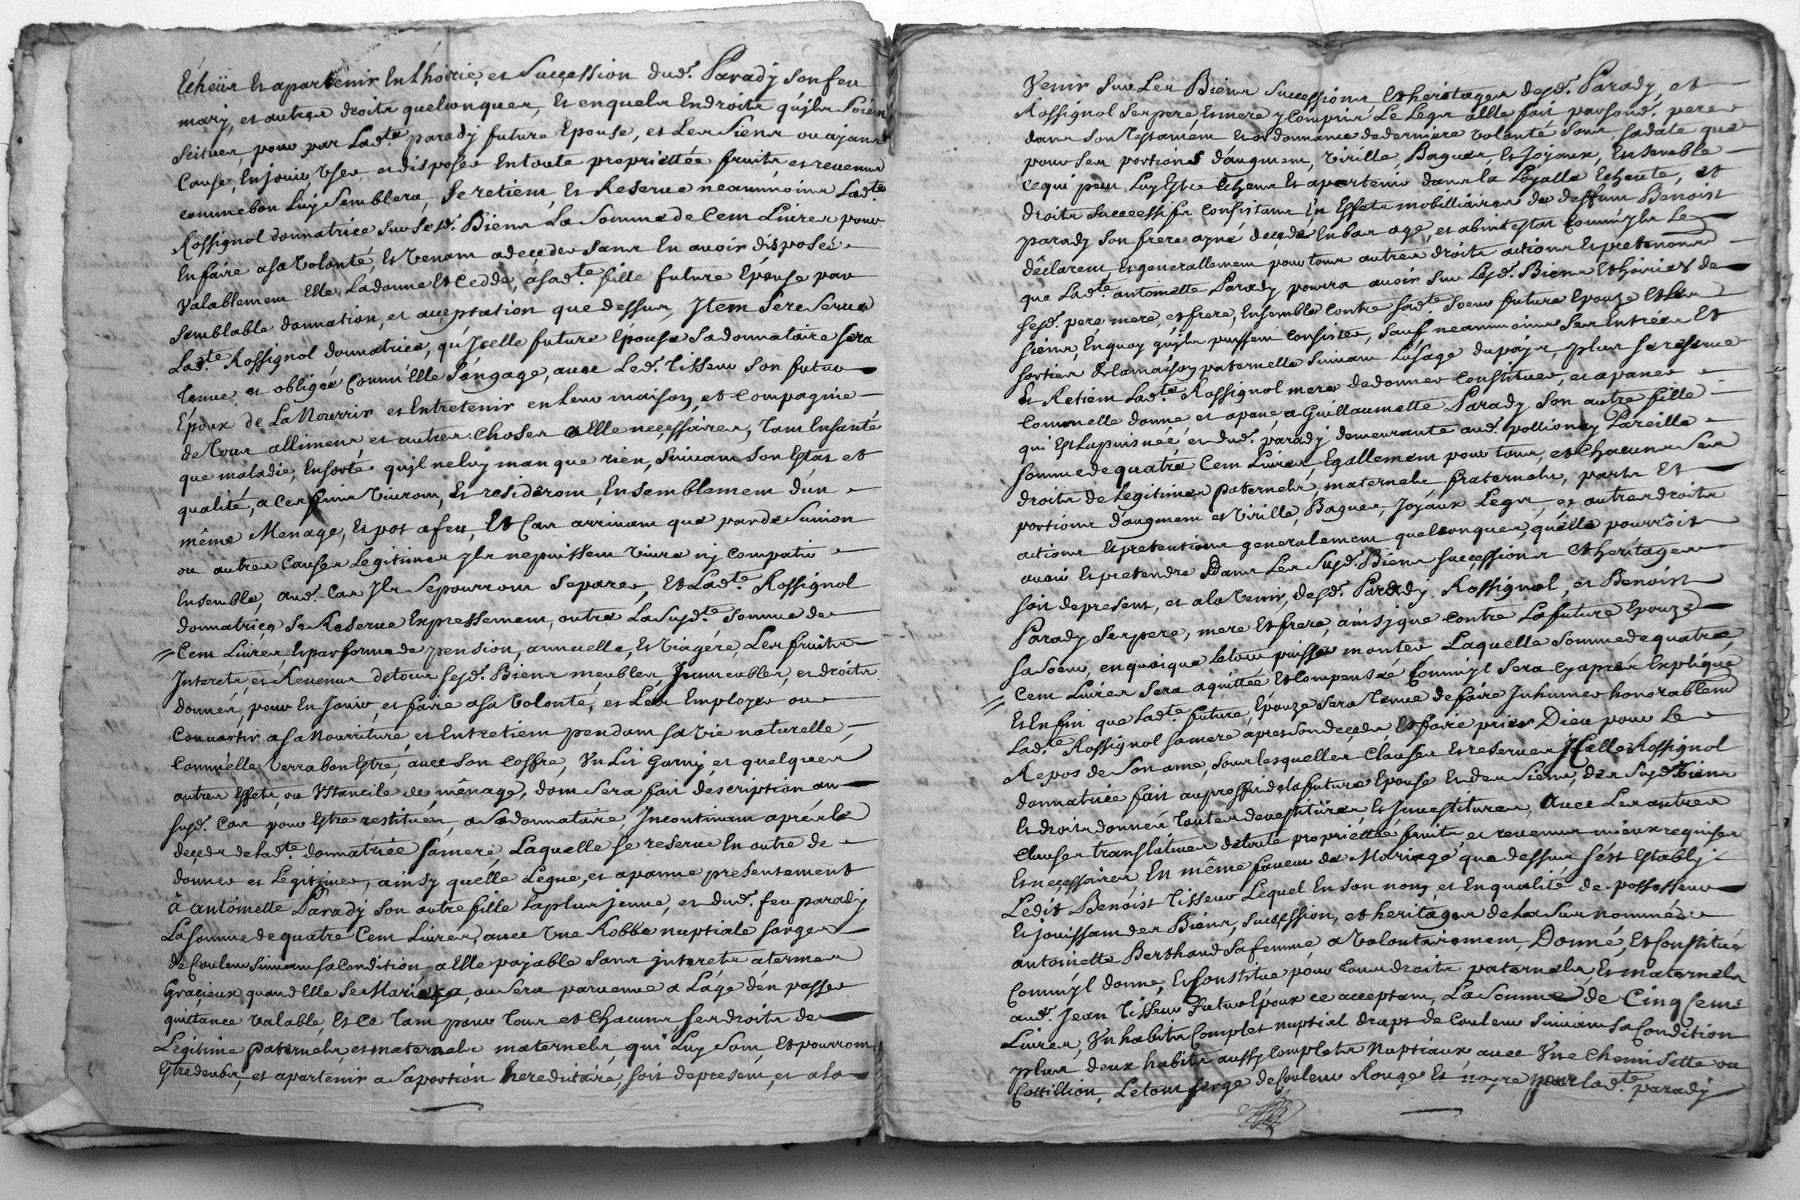 Echeus et apartenir en l'hoirie et succession dud. Parady son feu
mary, et autres droits quelconques, et en quels endroits qu'ils soient
scitues, pour par Lad.te parady future Epouse, et Les Siens ou ayants
Cause, En jouir User et disposer En toute propriettée fruits et revenus
comme bon Luy Semblera, Se retient, et Reserve neammoins Lad.te
Rossignol donnatrice sur Sesd. Biens La Somme de Cent Livres pour
En faire a sa Volonté, Et Venant a deçeder sans En avoir disposée
Valablement Elle La donne Et Cedde, a sad.te fille future Epouse par
Semblable donnation, et acceptation que dessus, Item Se reserve
Lad.te Rossignol donnatrice, qu'Icelle future Epouse Sa donnataire sera
tenue et obligée Comm'Elle S'engage, avec Led. Tisseur Son futur
Epoux de La Nourrir et Entretenir en Leur maison, et Compagnie
de Tous alliments et autres Choses a Elle neçessaires, Tant En santé
que maladie, En sorte qu'il ne luy manque rien, Suivant Son Estat et
qualité, a Ces fins Vivront, Et residèront Ensemblement d'un
même Menage, Et pot a feu, Et Cas arrivant que par desunion
ou autres Causes Legitimes Ils ne puissent Vivre nj compatir
Ensemble, aud. Cas Ils Se pourront Separer, Et Lad.te Rossignol
donnatrice Se Reserve Expressement, outre La Susd.te Somme de
Cent Livres, Et par forme de pension, annuelle, Et Viagère, Les fruits
Interets, et Revenus de tous sesd. Biens meubles Immeubles, et droits
donnés, pour En Jouir, et faire a sa Volonté, et Les Employer ou
Convertir a sa Nourriture, et Entretient pendant sa Vie naturelle,
Comm'elle Verra bon Estre, avec Son Coffre, Un Lit Garny, et quelques
autres Effets, ou Ustancile de ménage, dont Sera fait déscription au
susd. Cas pour Estre restitués, a Sa donnataire, Incontinant après le
deceds de Lad.te donnatrice Sa mere, Laquelle Se reserve En outre de
donner et Legitimer, ainsy quelle Legue, et apanne presentement
à antoinette Parady Son autre fille La plus jeune, et dud. feu parady
La Somme de quatre Cent Livres, avec Une Robbe nuptiale Sarge
de Couleur Suivant sa Condition, a Elle payable Sans Interets a termes
Graçieux quand Elle Se Mariera, ou Sera parvenue a L'âge d'en passer
quittance Valable, Et Ce Tant pour Tous et Chacuns Ses droits de
Legitime paternels et maternels maternels, qui Luy Sont, Et pourront
Estre deubs, et apartenir a sa portion hereditaire, Soit de present, et a la
Venir Sur Les Biens Successions Et heritages desd. Parady, et
Rossignol Ses pere Et mere y Compris Le Legs a Elle fait par sond. pere
dans Son Testament Et ordonnance de derniere Volonté Sous Sa date que
pour Ses portions d'augment, Virille, Bagues, Et Joyaux, Ensemble
ce qui peut Luy Estre Echeus Et apartenir dans la Loyalle Echeute, et
droits Successifs Consistant En Effets mobilliaires de deffunt Benoist
parady Son frere ayné deçedé En bas age, et abintestat Comm'ils Le
déclarent, Et generallement pour tous autres droits actions Et pretentions
que Lad.te antoinette Parady pourra avoir Sur Lesd. Biens Et hoiries de
Sesd. pere mere, et frere, Ensemble contre Sad.te Soeur future Epouze Et Les
Siens, En quoy qu'ils puissent Consister, Sauf neammoins Ses Entrées Et
Sorties de La maison paternelle Suivant L'usage du païs, plus Se reserve
Et Retient Lad.te Rossignol mere de donner Constituer, et apaner
Comm'elle donne, et apane, a Guillaumette Parady Son autre fille
qui Est La puisnée, et dud. parady demeurante aud. pollionay Pareille
Somme de quatre Cent Livres, Egallement pour tous, et Chacuns Ses
droits de Legitimes paternels, maternels fraternels, parts Et
portions d'augment et Virille, Bagues, Joyaux Legs, et autres droits
actions Et pretentions generalement quelconques, qu'elle pourroit
avoir Et pretendre Dans Les Susd. Biens Successions Et heritages
Soit de present, et a la Venir, desd. Parady, Rossignol, et Benoist
Parady Ses pere, mere Et frere, ainsy que contre La future Epouze
Sa Soeur, en quoi que Le tout puisse monter Laquelle Somme de quatre
Cent Livres Sera aquittée Et Compensée Comm'il Sera Cy après Expliqué
Et En fin que Lad.te future Epouze Sera Tenue de faire Inhumer honnorablem.t
Lad.te Rossignol Sa mere apres Son deceds Et faire prier Dieu pour Le
Repos de Son ame, Sous lesquelles Clauses Et reserves Icelle Rossignol
donnatrice fait au proffit de la future Epouse Et des Siens, des Susd. Biens
Et droits donnés Toutes devestitures, Et Investitures, avec Les autres
Clauses translatives de toute propriettée fruits, et revenus mieux requises
Et neçessaires En même faveur de Mariage que dessus S'est Establj
Ledit Benoist Tisseur Lequel En Son nom, et En qualité de possesseur
Et jouissant des Biens, Succession, et heritages de La Surnommée
antoinette Berthaud Sa femme a Volontairement, Donné, et Constitué
Comm'il donne, Et Constitue pour Tous droits paternels Et maternels
aud. Jean Tisseur Futur Epoux ce acceptant, La Somme de Cinq Cents
Livres, Un habits Complet nuptial draps de Couleur Suivant Sa Condition
plus deux habits aussy Complets Nuptiaux avec Une Chemisette ou
Cottillion, Le tout Serge de Couleur Rouge Et noyre pour Lad.te parady